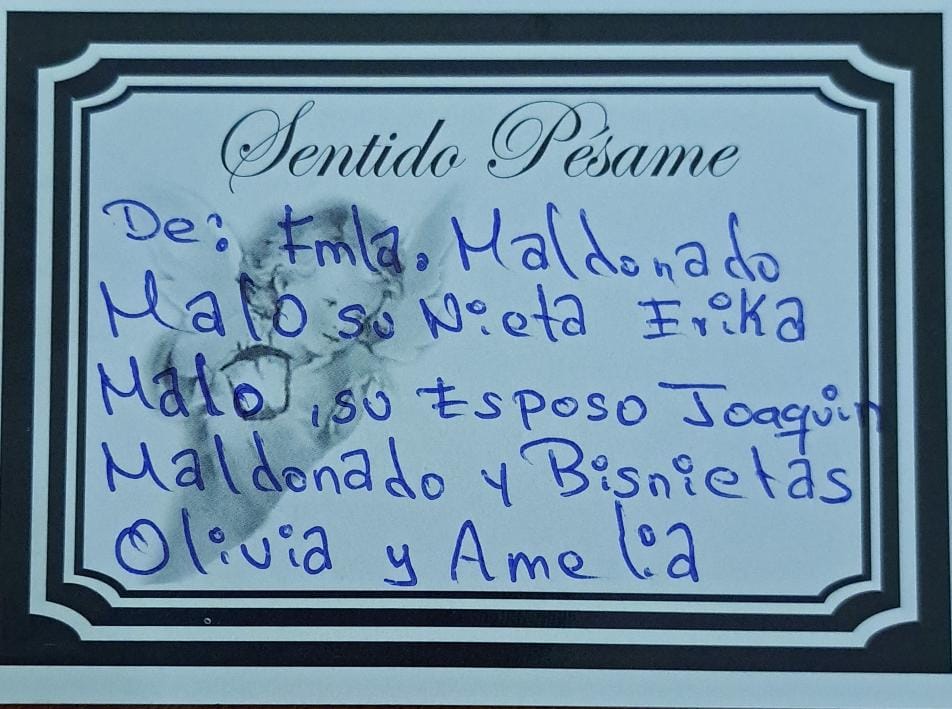 Sentido Pésame
De: Fmla. Maldonado
Malo su Nieta Erika
Malo, su Esposo Joaquin
Maldonado y Bisnietas
Olivia y Amelia